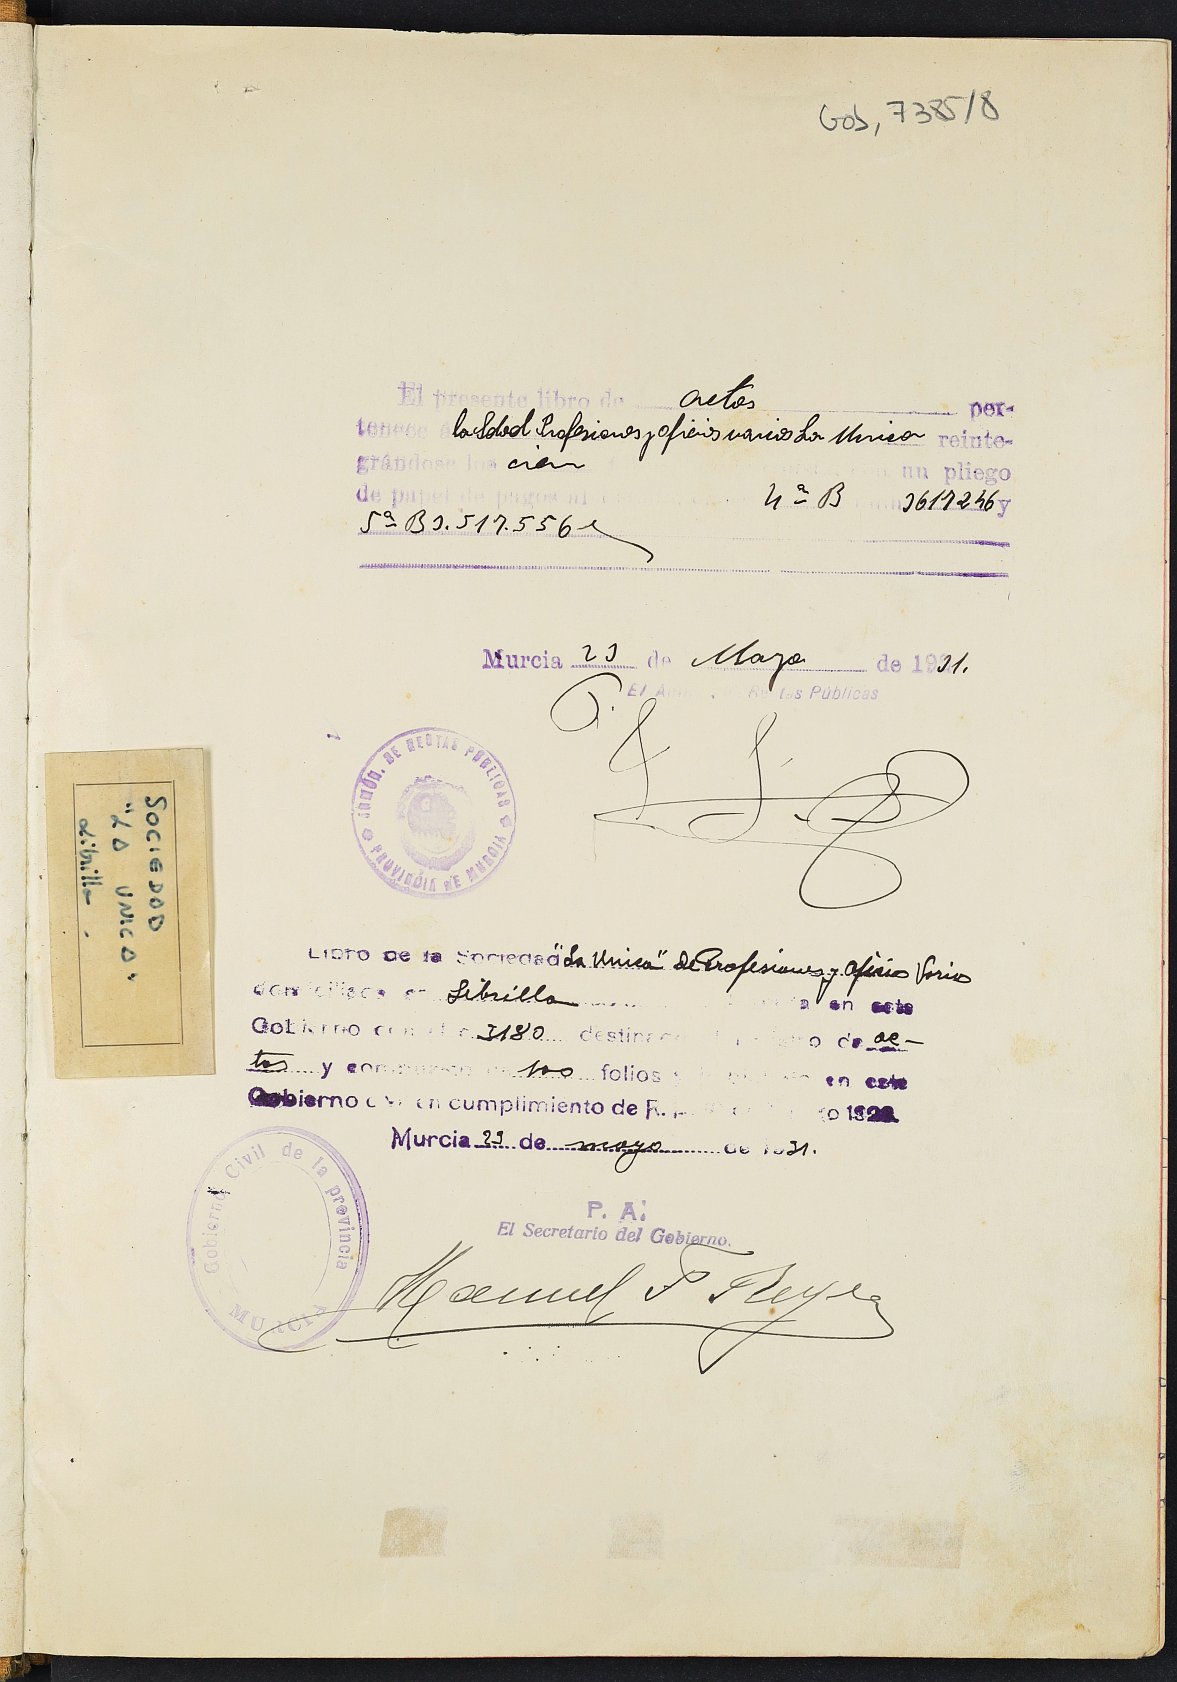 Gob, 7385/8
El presente libro de actas per-
tenece á la Sdad Profesiones y oficios varios La Unica reinte-
grándose los cien un pliego
de papel de pagos al 4ª B 3617246 y
5ª B 3.517.556
Murcia 23 de Mayo de 1931.
El Públicas
ADMÓN. DE RENTAS PÚBLICAS
PROVINCIA DE MURCIA
SOCIEDAD
"LA UNICA"
Librilla -
Libro de la Sociedad "La Unica" de Profesiones y oficios Varios
domiciliada en Librilla en este
Gobierno con el 3180 destinado de ac-
tas y 100 folios en este
Gobierno en cumplimiento de R.
Murcia 23 de mayo de 1931.
Gobierno Civil de la provincia
MURCIA
P. A.
El Secretario del Gobierno.
Manuel